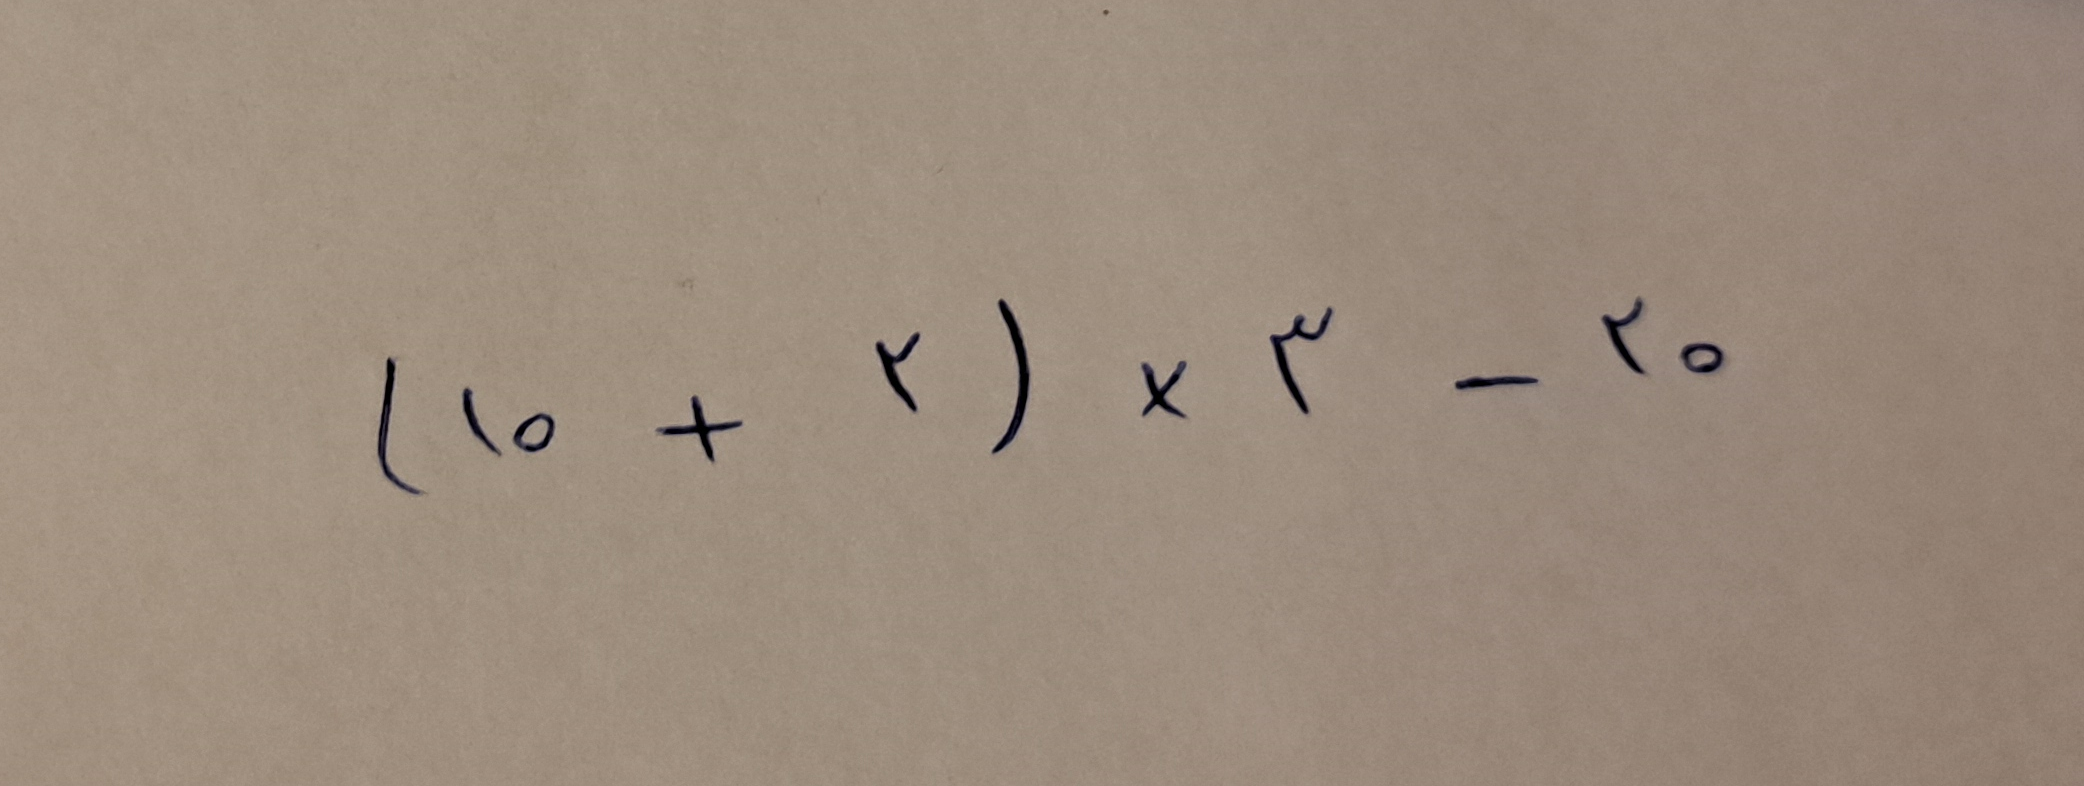 (۱۰ + ۲) × ۳ - ۲۰